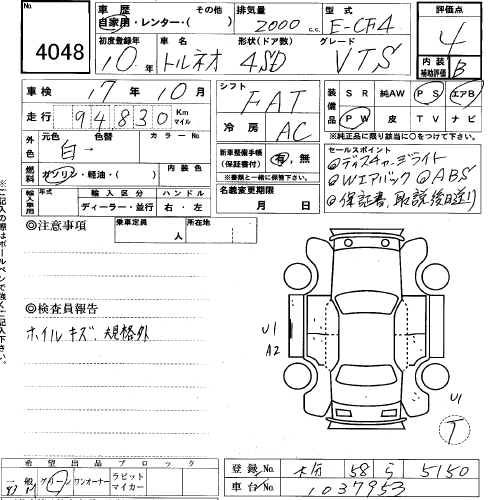 No.
4048
車歴 その他
自家用・レンター・( )
排気量
2000 c.c.
型式
E-CF4
評価点
4
内装補助評価
B
初度登録年
10年
車名
トルネオ
形状(ドア数)
4SD
グレード
VTS
車検 17年10月
走行 94,830 Km マイル
シフト
FAT
冷房
AC
装備品 SR 純AW PS エアB
PW 皮 TV ナビ
※純正品に限り該当に○をつけて下さい。
外色 元色 色替 カラーNo.
白→
燃料 ガソリン・軽油・( ) 内装色
新車整備手帳(保証書付) 有・無
※書類と一緒に保管下さい。
セールスポイント
◎ディスチャージライト
◎Wエアバック ◎ABS
◎保証書、取説後日送り
輸入車用 年式 輸入区分 ハンドル
ディーラー・並行 右・左
名義変更期限
月 日
◎注意事項
乗車定員 人
所在地
◎検査員報告
ホイルキズ、規格外
U1
A2
U1
T
希望出品ブロック
一般 グリーン ワンオーナー ラビットマイカー
登録No. 58 ら 5150
車台No. 1037953
※ご記入の際はボールペンで強くご記入下さい。